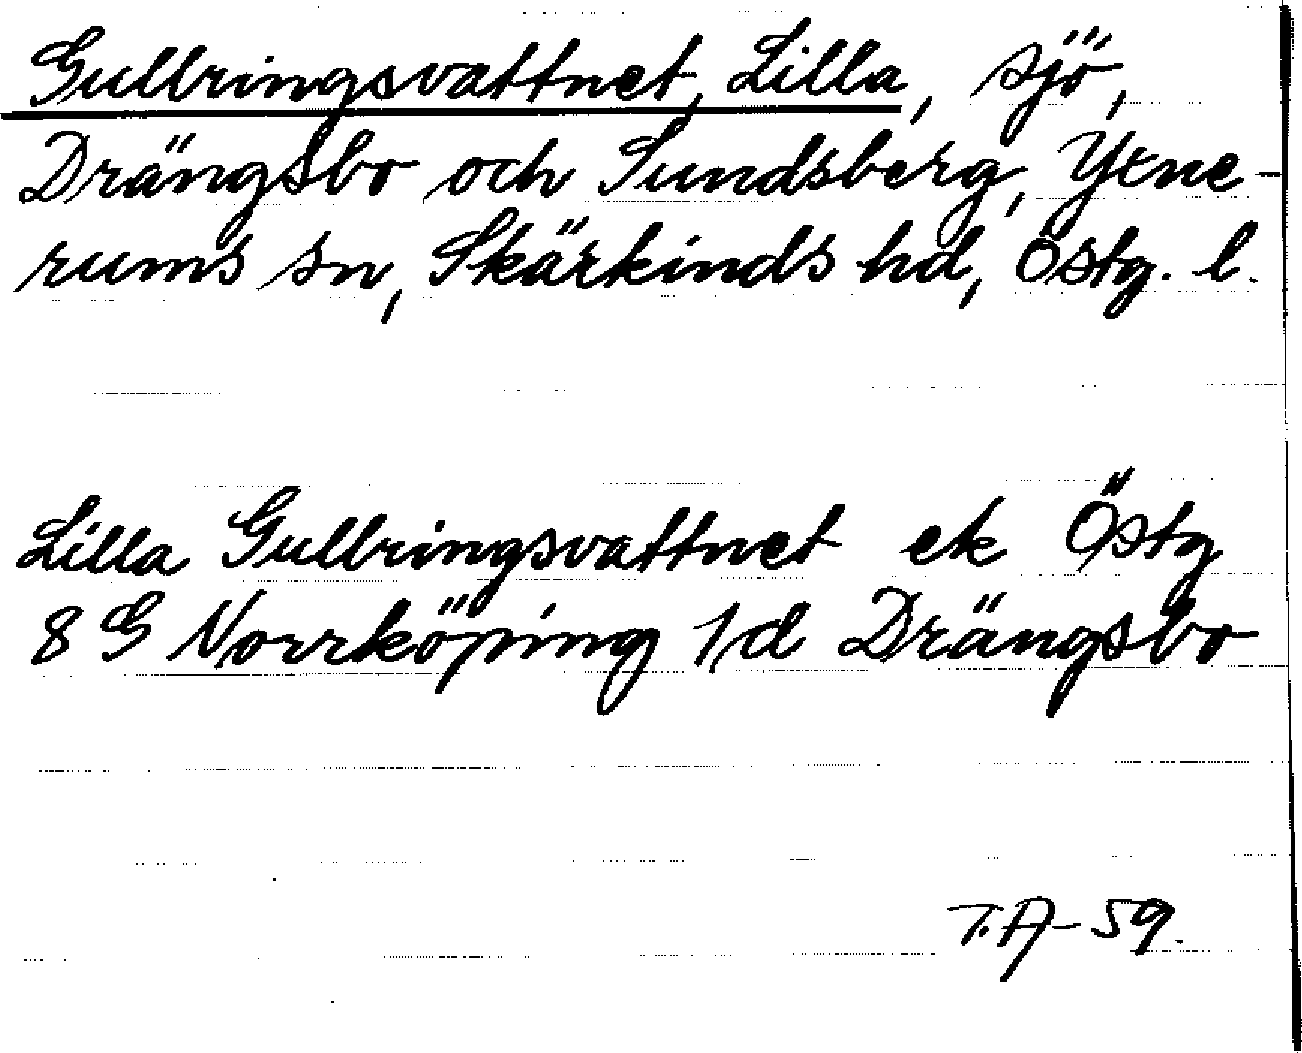 Gullringsvattnet, Lilla, sjö,
Drängsbo och Sundsberg, Yxne-
rums sn, Skärkinds hd, Östg. l.
Lilla Gullringsvattnet ek Östg
8 G Norrköping 1d Drängsbo
T.A-59.